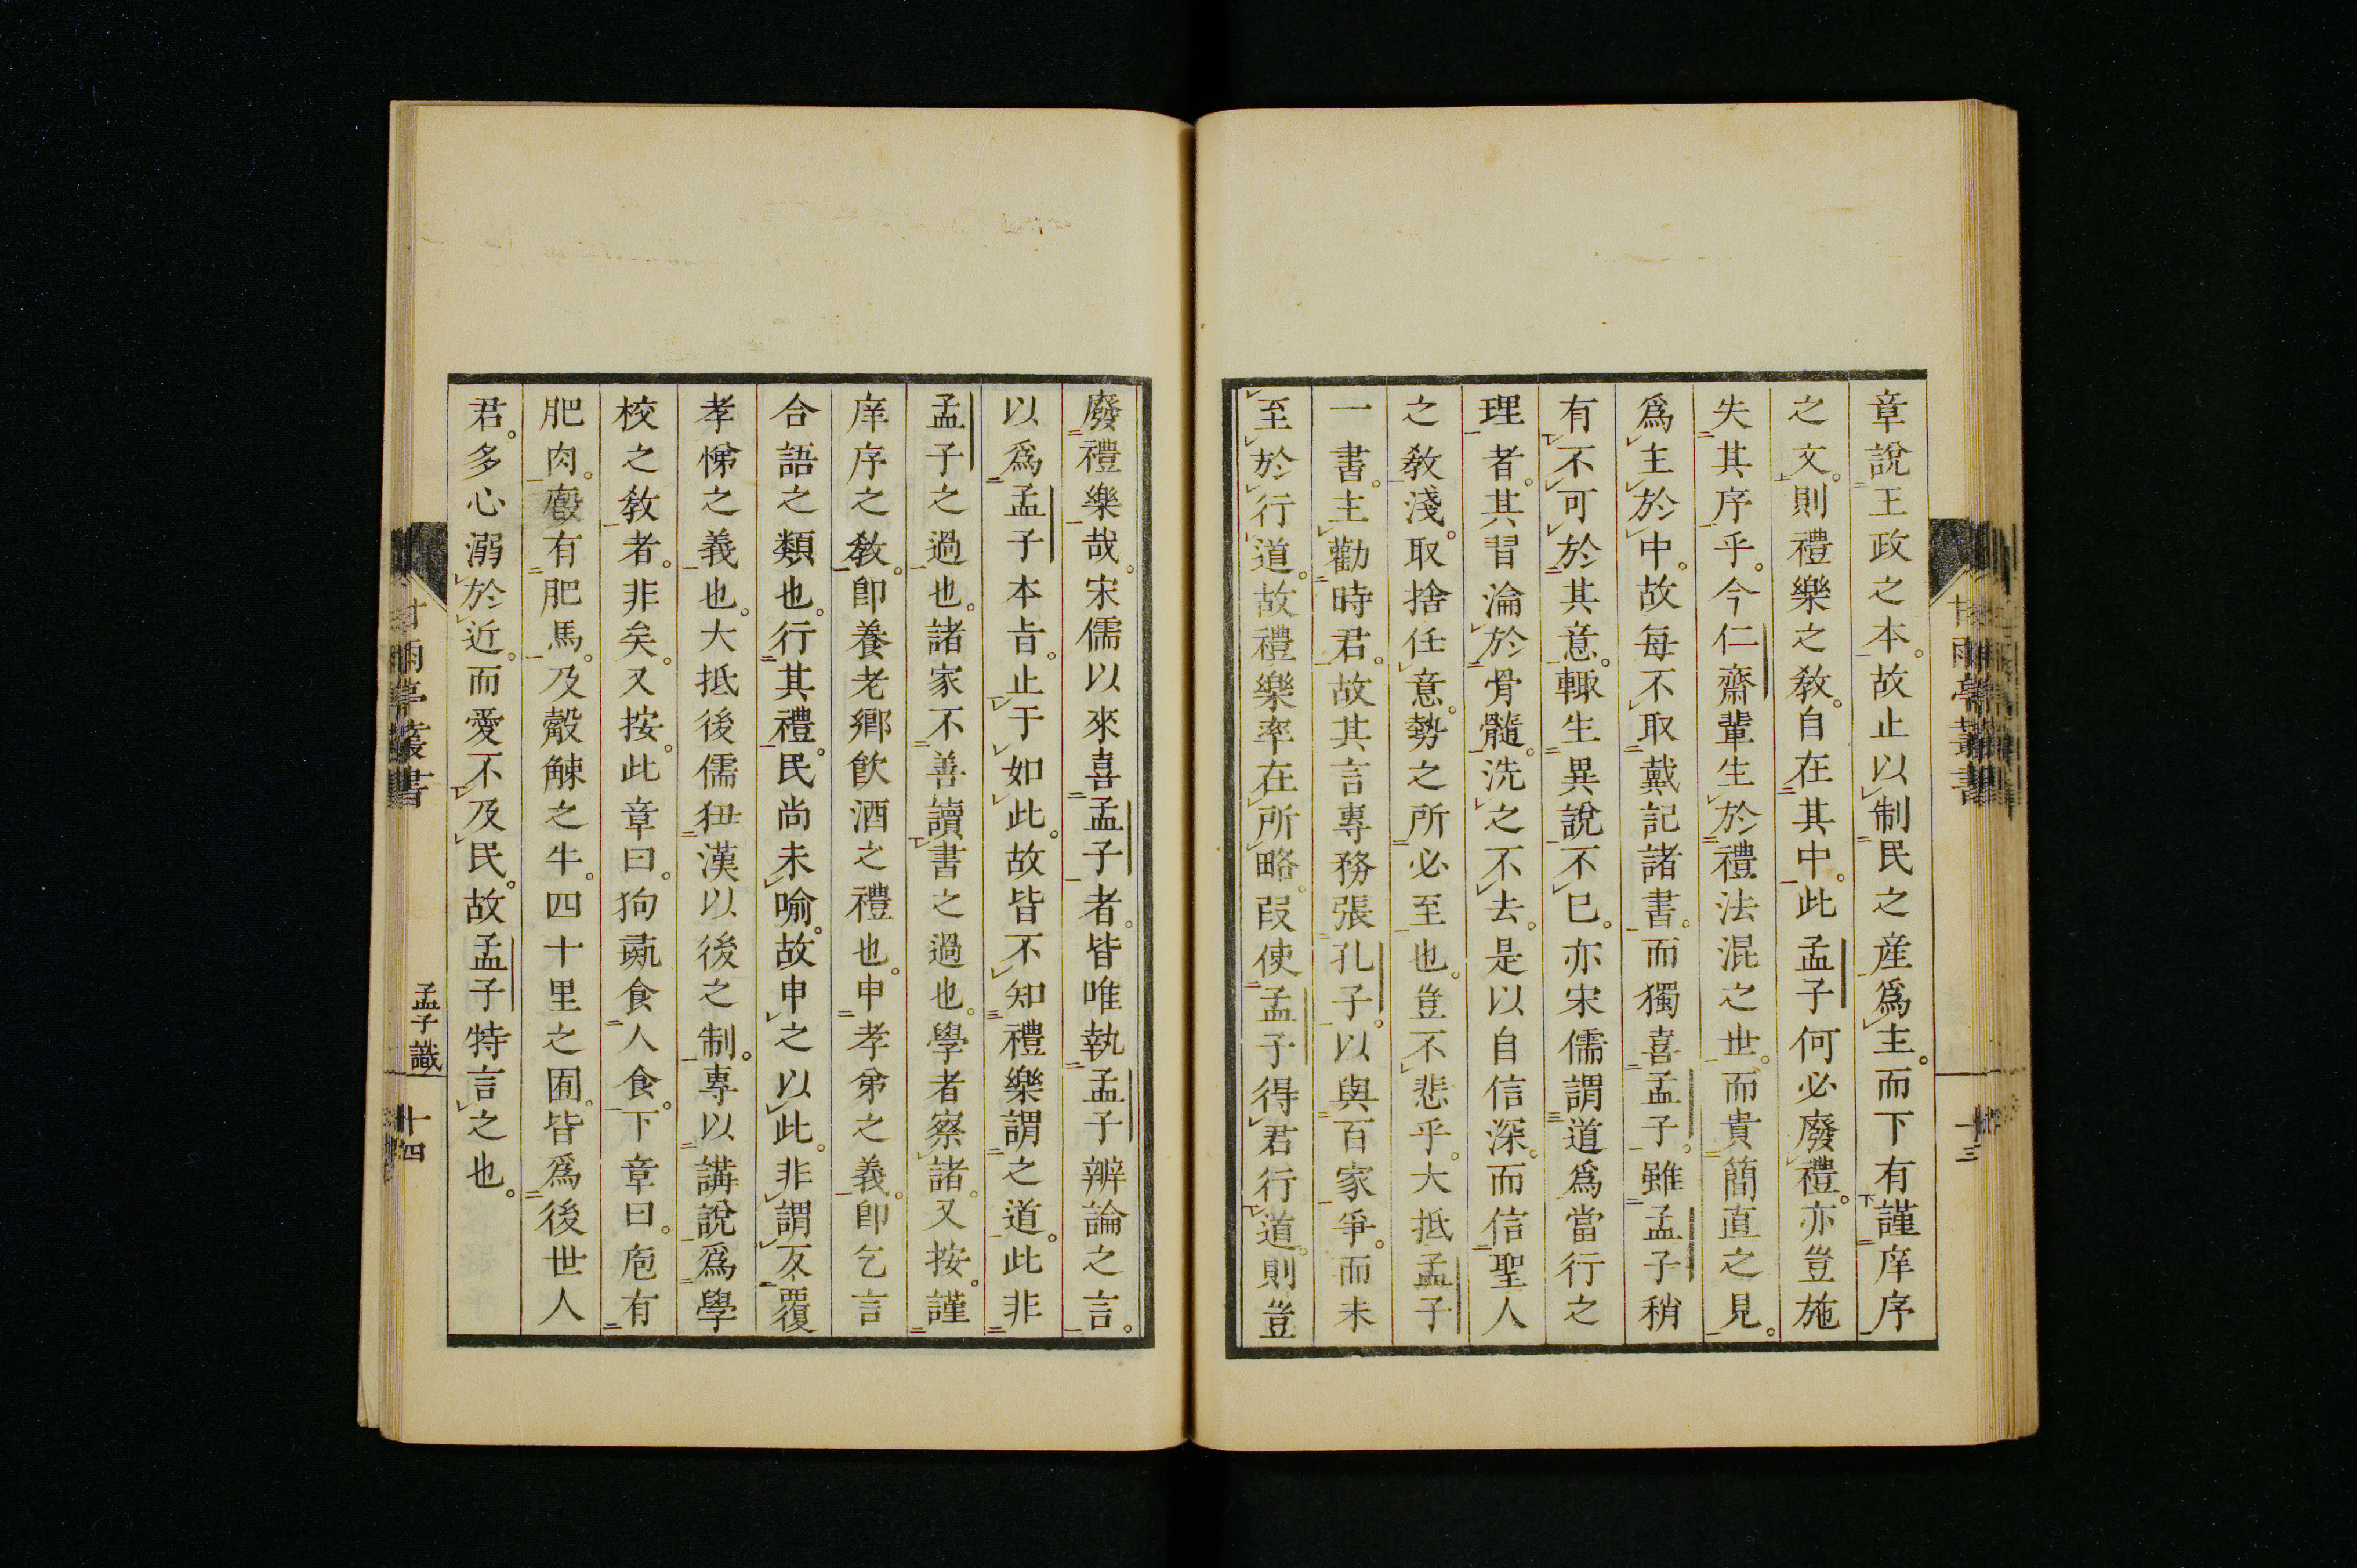 章說王政之本。故止以制民之産爲主。而下有謹庠序
之文。則禮樂之敎。自在其中。此孟子何必廢禮。亦豈施
失其序乎。今仁齋輩生於禮法混之世。而貴簡直之見。
爲主於中。故每不取戴記諸書。而獨喜孟子。雖孟子稍
有不可於其意。輙生異說不已。亦宋儒謂道爲當行之
理者。其習淪於骨髓。洗之不去。是以自信深。而信聖人
之敎淺。取捨任意。勢之所必至也。豈不悲乎。大抵孟子
一書。主勸時君。故其言專務張孔子。以與百家爭。而未
至於行道。故禮樂率在所略。叚使孟子得君行道。則豈
甘雨亭叢書
十三
廢禮樂哉。宋儒以來喜孟子者。皆唯執孟子辨論之言。
以爲孟子本旨。止于如此。故皆不知禮樂謂之道。此非
孟子之過也。諸家不善讀書之過也。學者察諸。又按。謹
庠序之敎。卽養老鄕飮酒之禮也。申孝弟之義。卽乞言
合語之類也。行其禮。民尚未喻。故申之以此。非謂反覆
孝悌之義也。大抵後儒狃漢以後之制。專以講說爲學
校之敎者。非矣。又按。此章曰。狗彘食人食。下章曰。庖有
肥肉。廏有肥馬。及觳觫之牛。四十里之囿。皆爲後世人
君。多心溺於近。而愛不及民。故孟子特言之也。
甘雨亭叢書
孟子識
十四